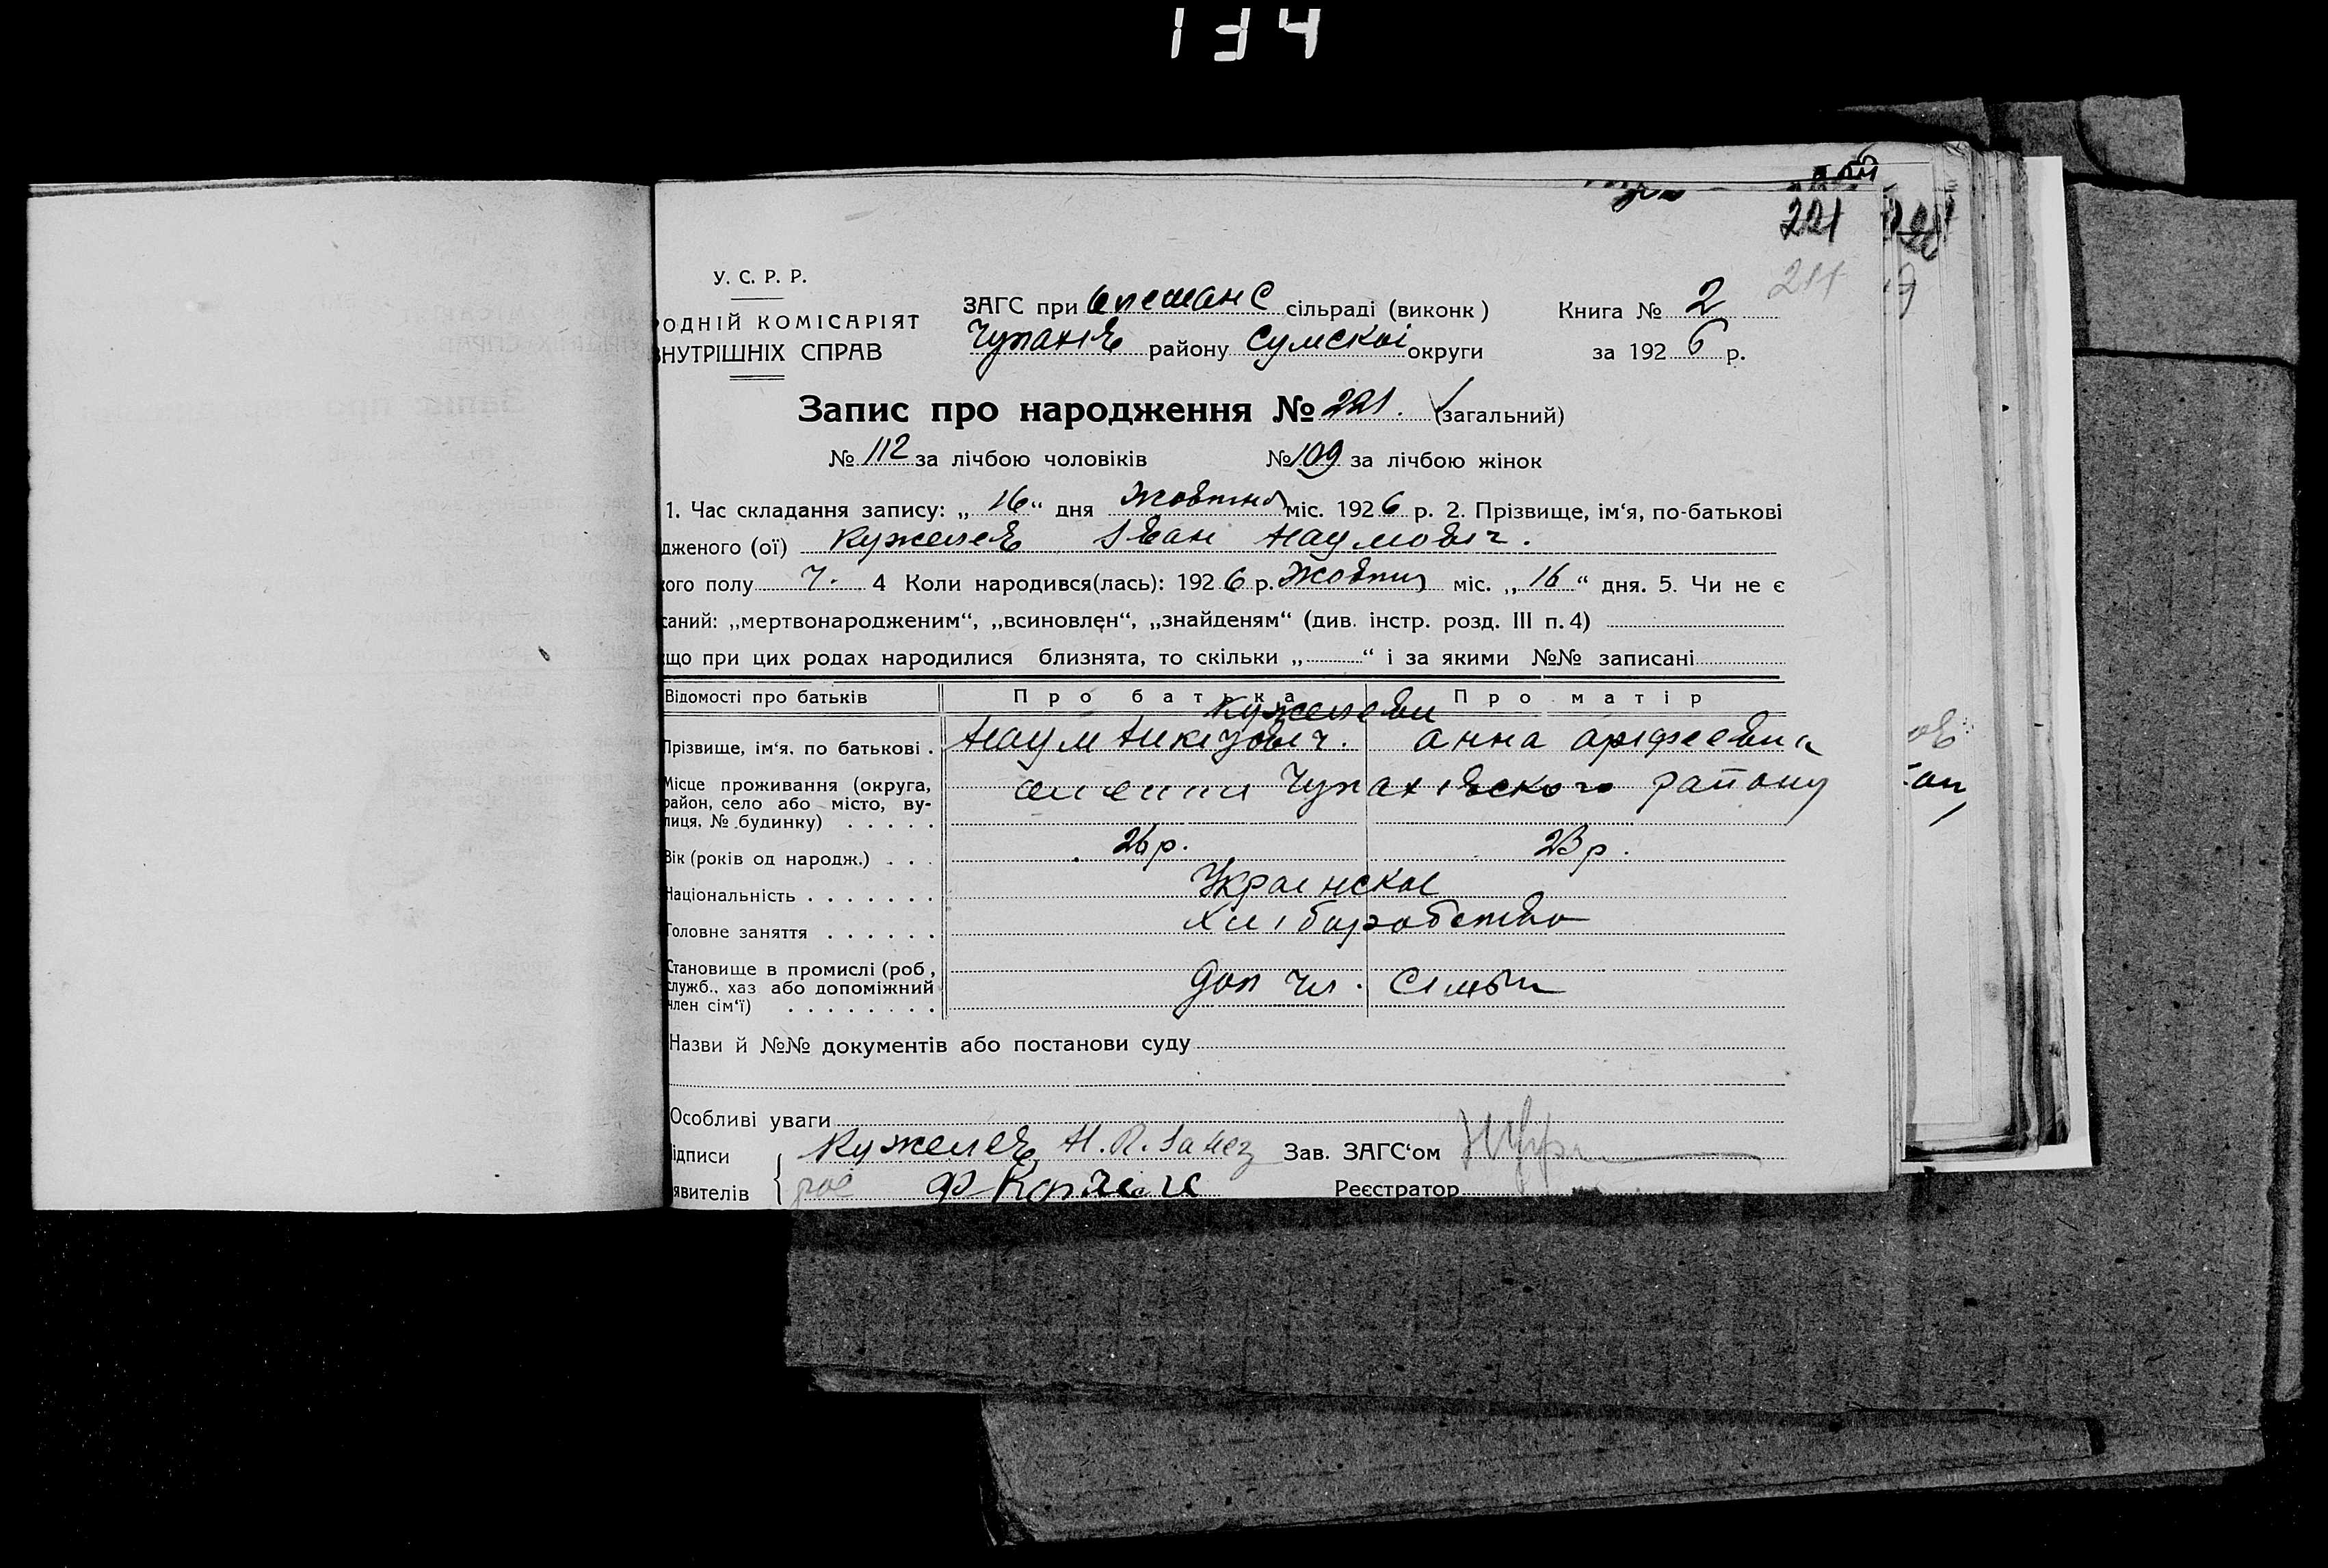 134
221
211
У. С. Р. Р.
РОДНІЙ КОМІСАРІЯТ
ВНУТРІШНІХ СПРАВ
ЗАГС при Олешанс сільраді (виконк)
Чупахів району Сумскої округи
Книга № 2
за 1926 р.
Запис про народження № 221. (загальний)
№ 112 за лічбою чоловіків № 109 за лічбою жінок
1. Час складання запису: „ 26 “ дня Жовтня міс. 1926 р. 2. Прізвище, ім‘я, по-батькові
дженого (ої) Кужелев Іван Наумович.
кого полу ч. 4 Коли народився(лась): 1926 р. Жовтня міс. „ 16 “ дня. 5. Чи не є
саний: „мертвонародженим“, „всиновлен“, „знайденям“ (див. інстр. розд. III п. 4)
кщо при цих родах народилися близнята, то скільки „ “ і за якими №№ записані
Відомості про батьків Про батька Про матір
Кужелеви
Прізвище, ім‘я. по батькові . Наум Никитович. Анна
Місце проживання (округа,
район, село або місто, ву-
лиця. № будинку) . . . . .
Чупахівского району
Вік (років од народж.) . . . 26 р. 23 р.
Національність . . . . . . . Украінскої
Головне заняття . . . . . . Хліборобство
Становище в промислі (роб,
служб., хаз або допоміжний
член сім‘ї) . . . . . . . .
доп чл. сімьи
Назви й №№ документів або постанови суду
Особливі уваги
ідписи Кужелев Н. Зав. ЗАГС‘ом
явителів Реєстратор